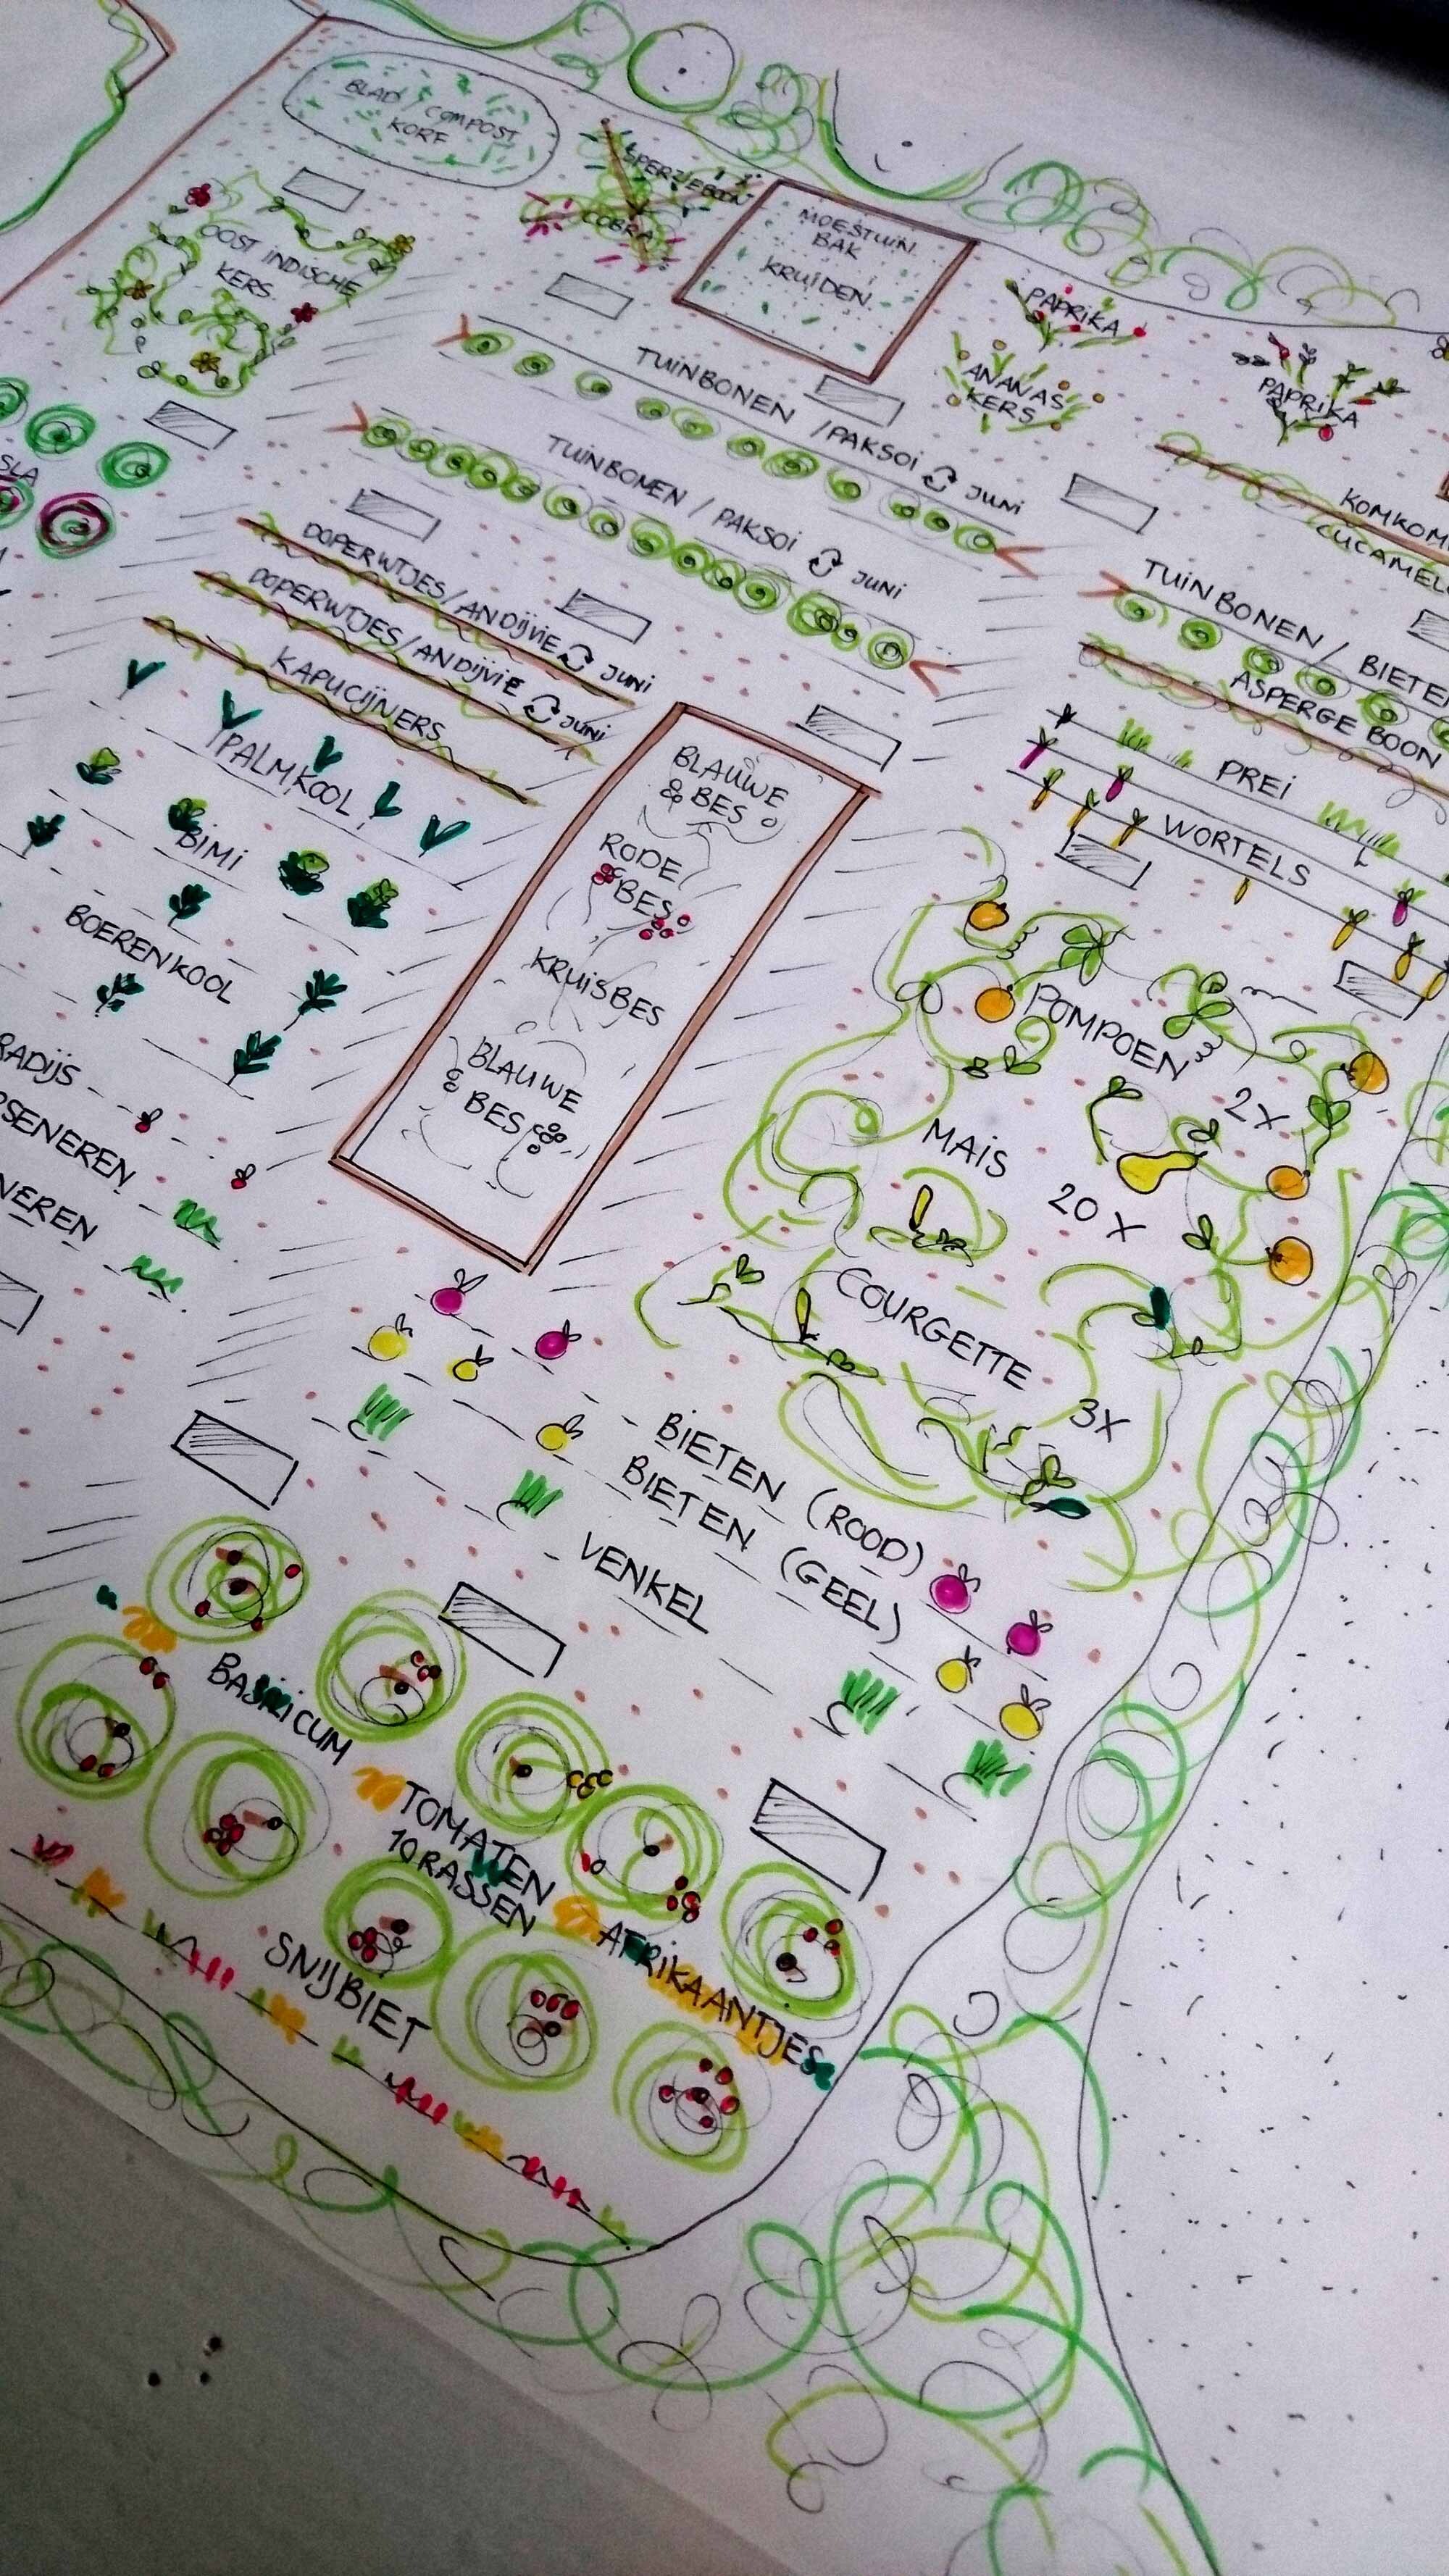 BLAD / COMPOST
KORF
SPERZIEBOON
COBRA
MOESTUIN
BAK
KRUIDEN
OOST INDISCHE
KERS
PAPRIKA
ANANAS
KERS
PAPRIKA
SLA
TUINBONEN / PAKSOI JUNI
TUINBONEN / PAKSOI JUNI
KOMKOM
CUCAMEL
DOPERWTJES/ANDIJVIE JUNI
DOPERWTJES/ANDIJVIE JUNI
KAPUCIJNERS
TUINBONEN / BIETE
ASPERGE BOON
PREI
WORTELS
PALMKOOL
BIMI
BOERENKOOL
RADIJS
SENEREN
NEREN
BLAUWE
BES
RODE
BES
KRUISBES
BLAUWE
BES
POMPOEN 2X
MAIS 20X
COURGETTE 3X
BIETEN (ROOD)
BIETEN (GEEL)
VENKEL
BASILICUM
TOMATEN
10 RASSEN
AFRIKAANTJES
SNIJBIET